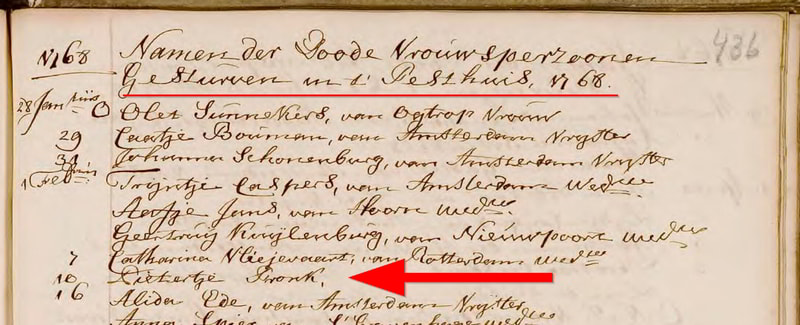 436
1768 Namen der Doode Vrouwsperzoonen
Gesturven in 't Pesthuis, 1768.
28 Januarij Olet Sunnekers, van Ogtrop Vrouw
29 Caatje Bouman, van Amsterdam Vryster
31 Johanna Schonenburg, van Amsterdam Vryster
1 Feb Trijntje Caspers, van Amsterdam Wedue
Aafje Jans, van Hoorn Wedue
Geertruy Kuijlenburg, van Nieuwpoort Wedue
7 Catharina Vliejevaart, van Rotterdam Wedue
10 Pietertje Pronk,
16 Alida Ede, van Amsterdam Vryster
Anna